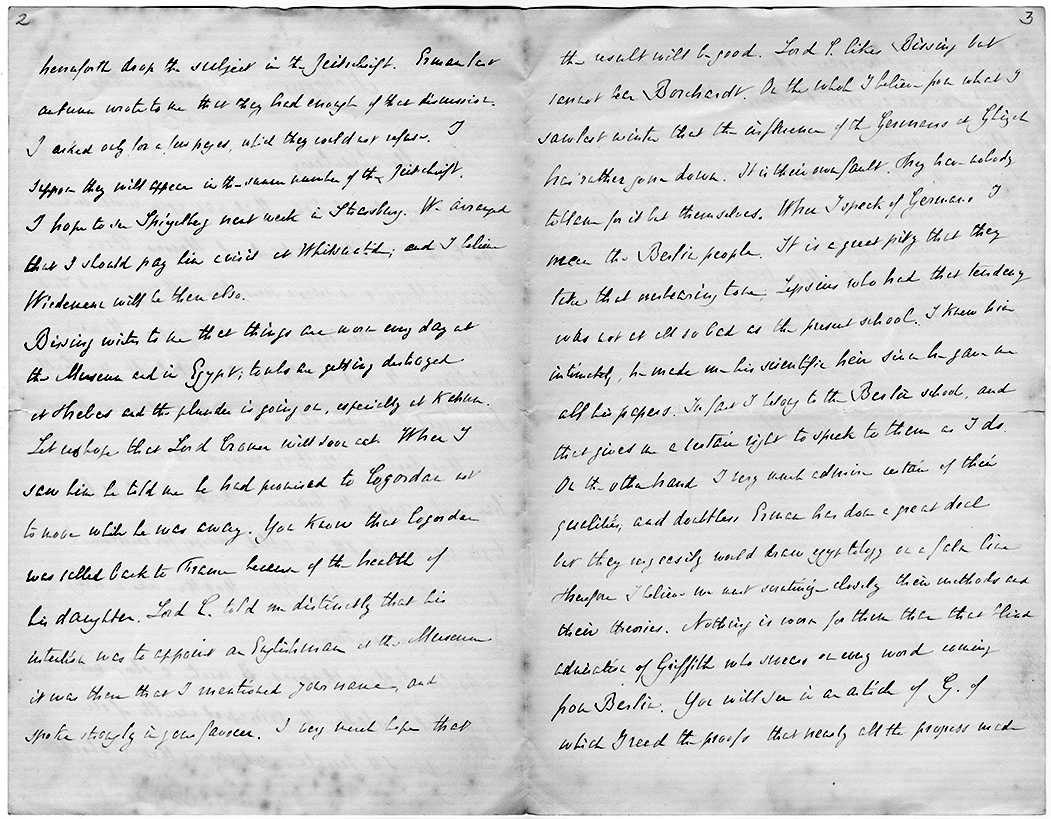 2
henceforth drop the subject in the Zeitschrift. Erman last
autumn wrote to me that they had enough of that discussion.
I asked only for a few pages, which they could not refuse. I
suppose they will appear in the summer number of the Zeitschrift.
I hope to see Spiegelberg next week in Strasburg. We arranged
that I should pay him a visit at Whitsuntide; and I believe
Wiedemann will be there also.
Bissing writes to me that things are worse every day at
the Museum and in Egypt; tombs are getting destroyed
at Thebes and the plunder is going on, especially at Kahun.
Let us hope that Lord Cromer will soon act. When I
saw him he told me he had promised to Cogordan not
to move while he was away. You know that Cogordan
was called back to France because of the health of
his daughter. Lord C. told me distinctly that his
intention was to appoint an Englishman at the Museum
it was then that I mentioned your name, and
spoke strongly in your favour. I very much hope that
3
the result will be good. Lord C. likes Bissing but
cannot bear Borchardt. On the whole I believe from what I
saw last winter that the influence of the Germans at Ghizeh
has rather gone down. It is their own fault. They have nobody
to blame for it but themselves. When I speak of Germans I
mean the Berlin people. It is a great pity that they
take that overbearing tone, Lepsius who had that tendency
was not at all so bad as the present school. I knew him
intimately, he made me his scientific heir since he gave me
all his papers. In fact I belong to the Berlin school, and
that gives me a certain right to speak to them as I do.
On the other hand I very much admire certain of their
qualities, and doubtless Erman has done a great deal
but they very easily would draw egyptology on a false line
therefore I believe we must scrutinize closely their methods and
their theories. Nothing is worse for them than that blind
admiration of Griffith who swears on every word coming
from Berlin. You will see in an article of G. of
which I read the proofs that nearly all the progress made